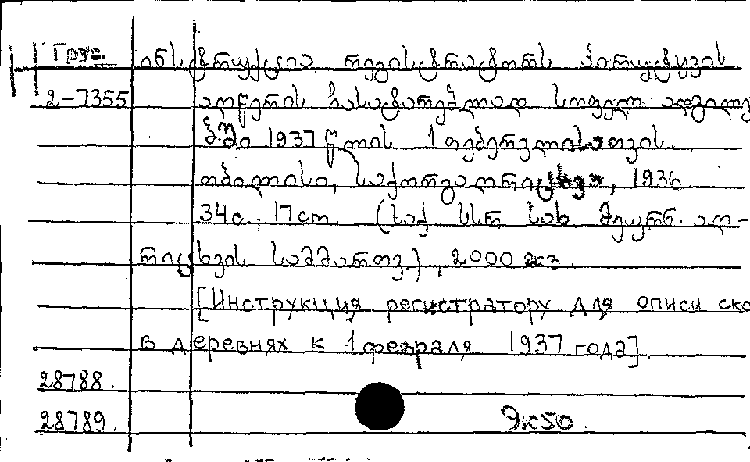 Груз ინსტრუქცია რეგისტრატორს პირუტყვის
2-7355 აღწერის ჩასატარებლად სოფელ ადგილე
ბში 1937 წლის 1 თებერვლისათვის
თბილისი, საქორგაღრიცხვა, 1936
34с. 17cm (საქ სსრ სახ მეურნ. აღ-
რიცხვის სამმართვ.), 2000 экз
[Инструкция регистратору для описи ско
в деревнях к 1 февраля 1937 года].
28788.
28789. 9к50